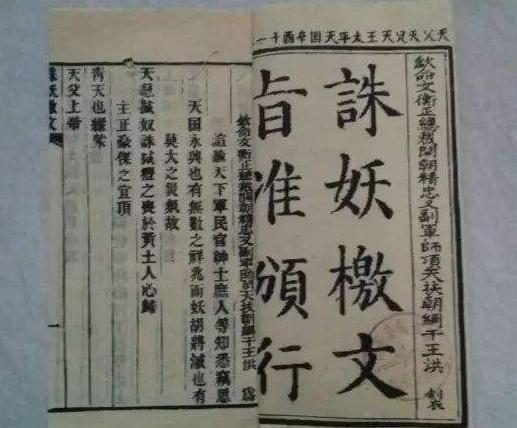 天父天兄天王太平天国辛酉十一
欽命文衡正總裁開朝精忠又副軍師頂天扶朝綱干王洪 制表
誅妖檄文
旨准頒行
欽命文衡正總裁開朝精忠又副軍師頂天扶朝綱干王洪 為
諠諭天下軍民官紳士庶人等知悉竊思
天国永興也有無數之祥兆而妖胡將滅也有
莫大之災氣故
天怒諴奴誅諴豐之喪於黃土人心歸
主正豪傑之宜頂
青天也緣蒙
天父上帝
誅妖檄文
一